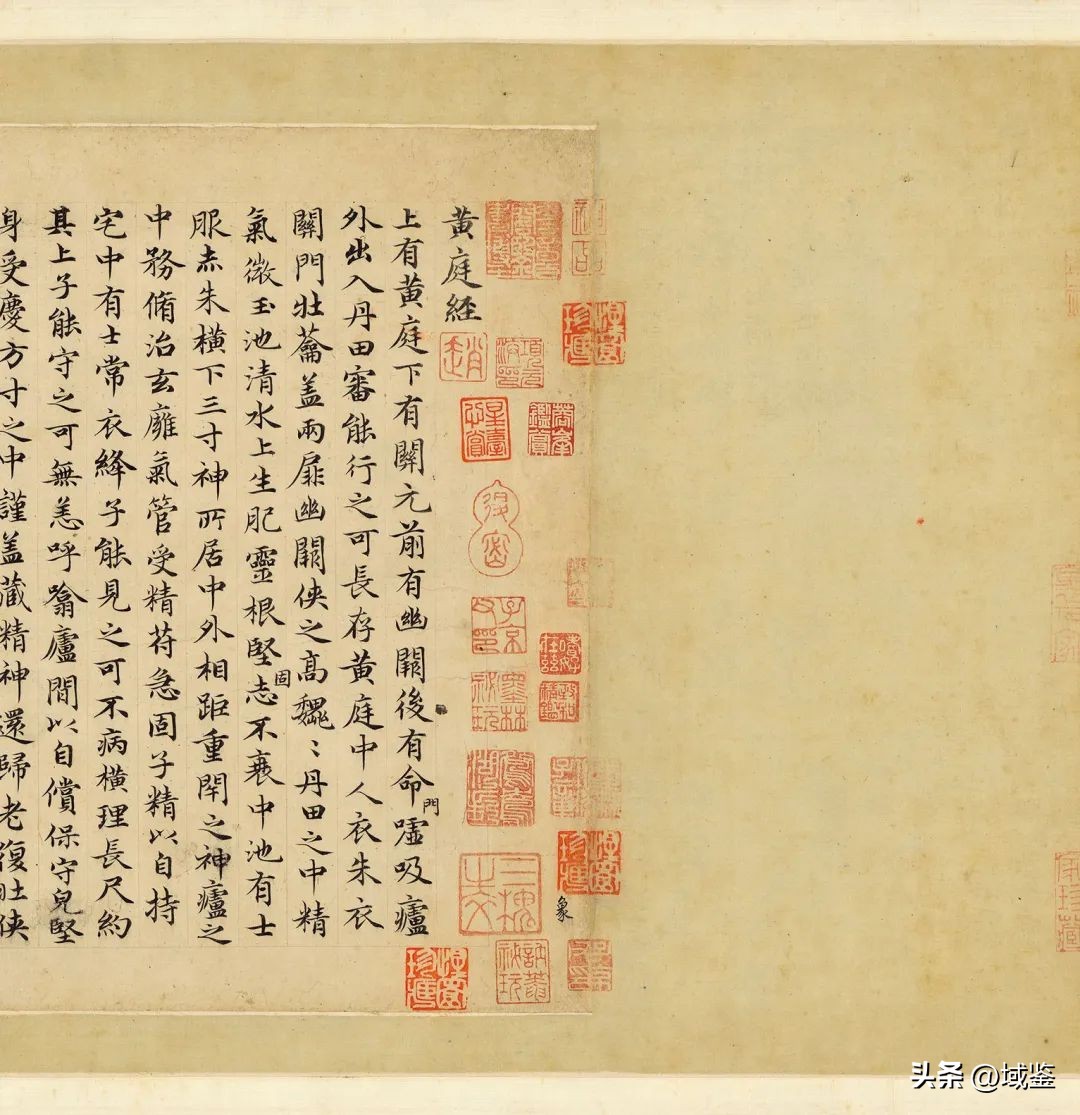 黄庭経
上有黄庭下有關元前有幽闕後有命門嘘吸廬
外出入丹田審能行之可長存黄庭中人衣朱衣
關門壯蘥盖兩扉幽闕俠之高魏〻丹田之中精
氣微玉池清水上生肥靈根堅固志不衰中池有士
服赤朱横下三寸神所居中外相距重閇之神廬之
中務脩治玄癰氣管受精苻急固子精以自持
宅中有士常衣絳子能見之可不病横理長尺約
其上子能守之可無恙呼噏廬間以自償保守皃堅
身受慶方寸之中謹盖藏精神還歸老復壯俠
神品
趙
項元汴印
子京父印
墨林秘玩
象
头条 @域鉴